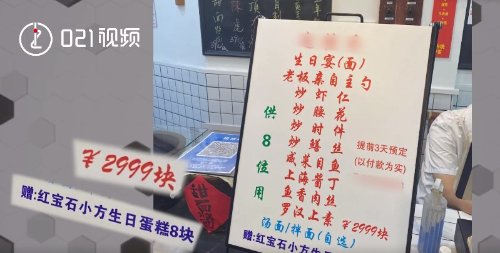 021视频
生日宴(面)
老板亲自主勺
炒虾仁
炒腰花
炒时件
炒鳝丝
咸菜目鱼
上海酱丁
鱼香肉丝
罗汉上素 ¥2999块
供8位用
提前3天预定
(以付款为实)
汤面/拌面(自选)
赠:红宝石小方生日蛋糕8块
¥2999块
赠:红宝石小方生日蛋糕8块